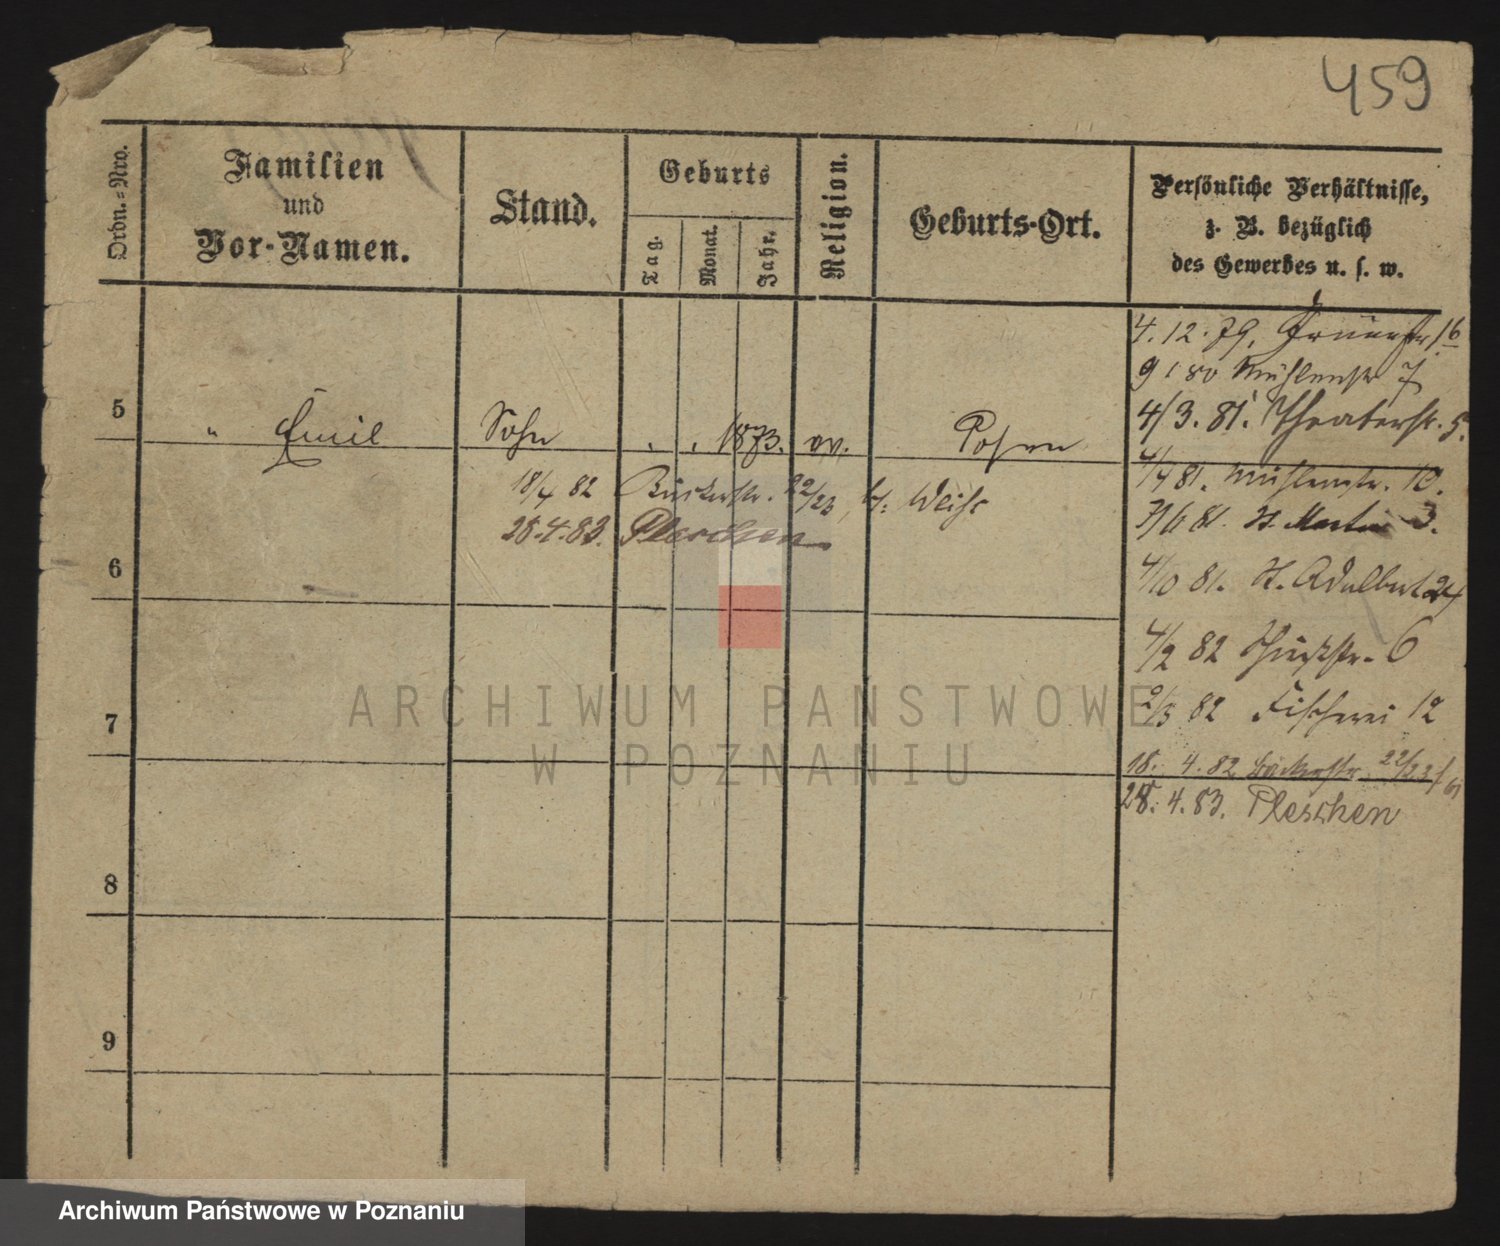 459
Ordn.-Nro.
Familien
und
Vor-Namen.
Stand.
Geburts
Tag.
Monat.
Jahr.
Religion.
Geburts-Ort.
Persönliche Verhältnisse,
z. B. bezüglich
des Gewerbes u. s. w.
4. 12. 79.
9 1 80 Mühlenstr 7
4/3. 81. Theaterstr. 5.
5 " Emil Sohn " " 1873. ev. Posen
4/4 81. Mühlenstr. 10.
18/4 82 Bäckerstr. 22/23, b. Weiss
81. St. Martin 3.
28.4.83. Pleschen
6
4/10 81. St. Adalbert 24
4/2 82 6
7
2/3 82 Fischerei 12
18. 4. 82 Bäckerstr. 22/23
28. 4. 83. Pleschen
8
9
ARCHIWUM PAŃSTWOWE
W POZNANIU
Archiwum Państwowe w Poznaniu